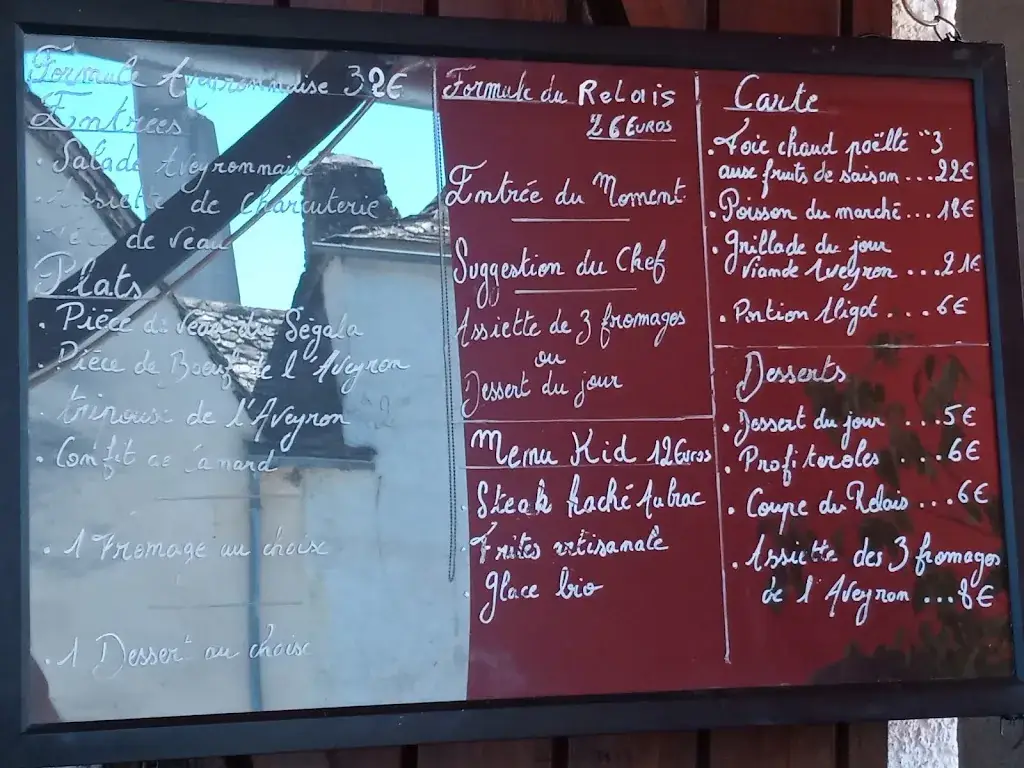 Formule Aveyronnaise 32€
Entrées
. Salade Aveyronnaise
. Assiette de Charcuterie
de Veau
Plats
. Pièce de veau du Ségala
. Pièce de Boeuf de l'Aveyron
. tripous de l'Aveyron
. Confit de Canard
. 1 Fromage au choix
. 1 Dessert au choix
Formule du Relais
26 Euros
Entrée du Moment
Suggestion du Chef
Assiette de 3 fromages
ou
Dessert du jour
Menu Kid 12 Euros
. Steak haché Aubrac
. Frites artisanale
. Glace bio
Carte
. Foie chaud poëllé "3
aux fruits de saison ...22€
. Poisson du marché ... 18€
. Grillade du jour
Viande Aveyron ...21€
. Portion Aligot .... 6€
Desserts
. Dessert du jour ...5€
. Profiteroles ....6€
. Coupe du Relais ...6€
. Assiette des 3 fromages
de l'Aveyron ...8€